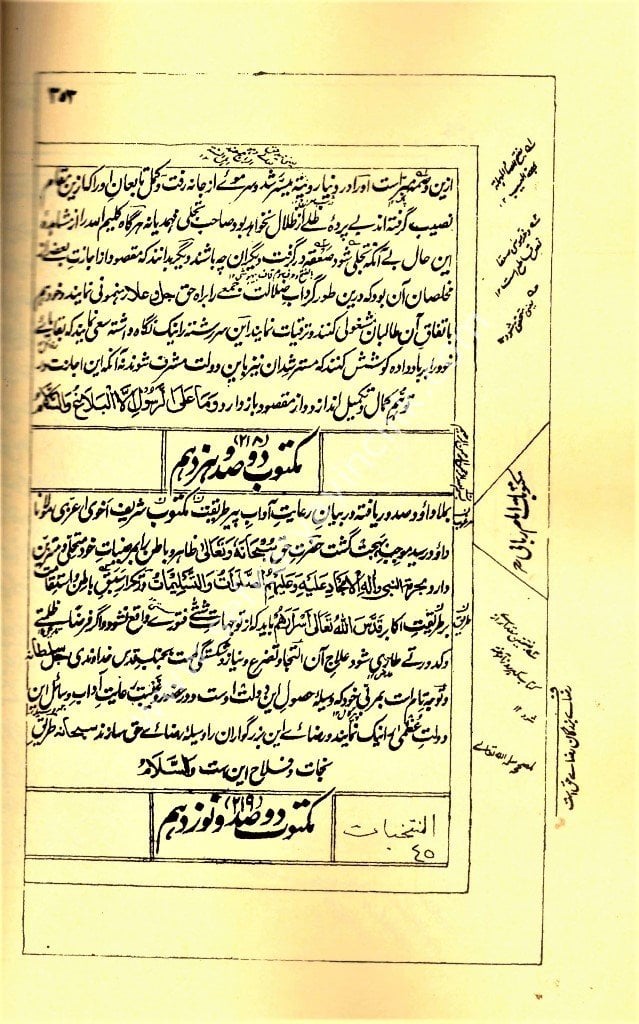 ۳۵۳
ازین و نصیب است او را در دنیا رویة میسر شد و سر موے از جا نه رفت و کمل تابعان او را که ازین مقام
نصیب گرفته اند بے پردۂ ظلے از ظلال نخواهد بود صاحب تجلی فهمد یا نه هرگاه کلیم الله از مشاهدۂ
این حال بے آنکه تجلی شود صعقه در گرفت دیگران چه باشند دیگر بدانند که مقصود از اجازت بعضے از
مخلصان آن بود که درین طور گرداب ضلالت جمعے را براه حق جل و علا رهنمونی نمایند و خود هم
باتفاق آن طالبان مشغولی کنند و ترقیات نمایند این سر رشته را نیک نگاه داشته سعی نمایند که بقایاے
خود را برباد داده کوشش کنند که مسترشدان نیز باین دولت مشرف شوند نه آنکه این اجازت در
توهم کمال و تکمیل اندازد و از مقصود باز دارد وَمَا عَلَى الرَّسُولِ إِلَّا الْبَلَاغُ وَالسَّلَامُ
مکتوب دو صد و هژدهم (۲۱۸)
بملا داؤد صدور یافته در بیان رعایت آداب پیر طریقت مکتوب شریف اخوی اعزی مولانا
داؤد رسید موجب بهجت گشت حضرت حق سبحانه وتعالی ظاهر و باطن را بمرضیات خود متحلی و مزین
دارد بحرمة النبی وآله الامجاد علیه وعلیهم الصلوات والتسلیمات و تکرار سبق باطن و استقامت
بر طریقت اکابر قدس الله تعالی اسرارهم باید که از توجهات شتی فتورے واقع نشود و اگر فرضا ظلمتے
و کدورتے طاری شود علاج آن التجا و تضرع و نیاز و شکستگی ست بجناب قدس خداوندی جل سلطانه
و توجه تام است بمربی خود که وسیلۂ حصول این دولت اوست و در حضور و غیبت رعایت آداب وسائل این
دولت عظمی را نیک نمایند و رضاے این بزرگواران را وسیلۂ رضاے حق سازند سبحانه طریق
نجات و فلاح این ست والسلام
مکتوب دو صد و نوزدهم (۲۱۹)
المنتخبات
٤٥
رضاے بزرگان رضاے حق است